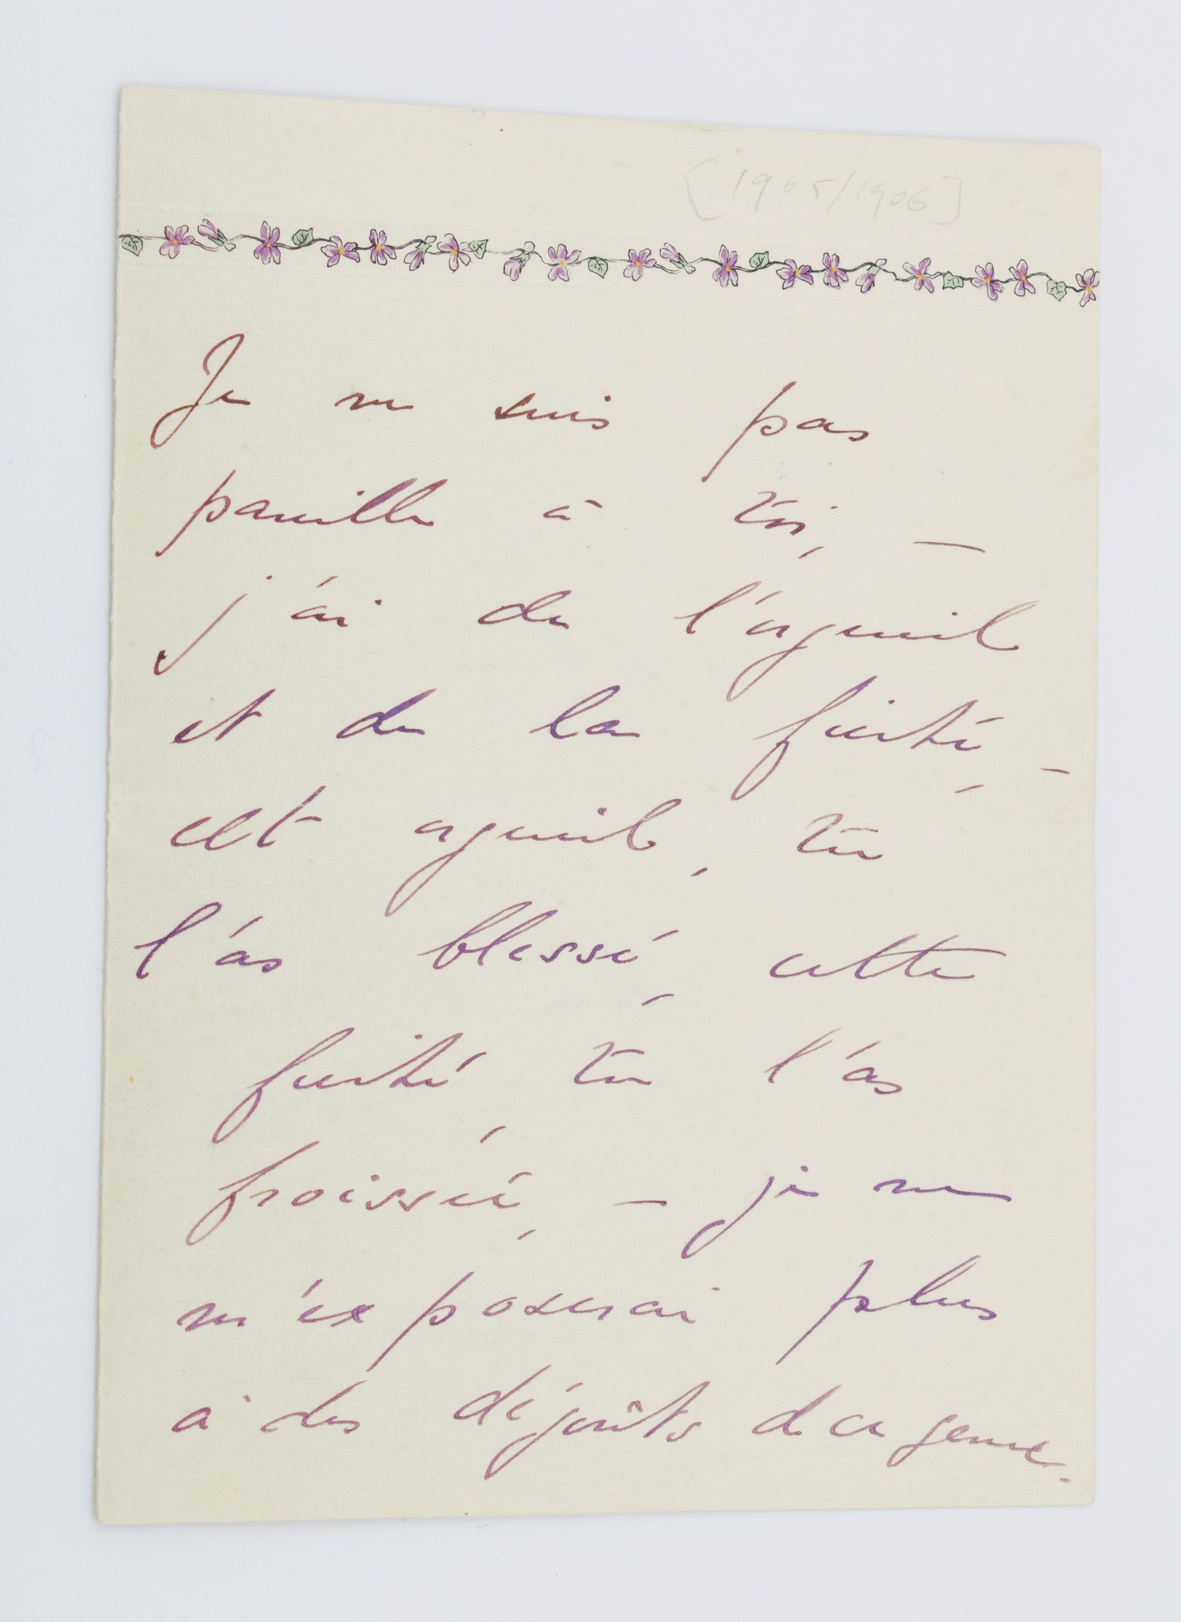 [1905/1906]
Je ne suis pas
pareille à toi, —
j'ai de l'orgueil
et de la fierté, —
cet orgueil, tu
l'as blessé, cette
fierté, tu l'as
froissée, — je ne
m'exposerai plus
à des dégoûts de ce genre.